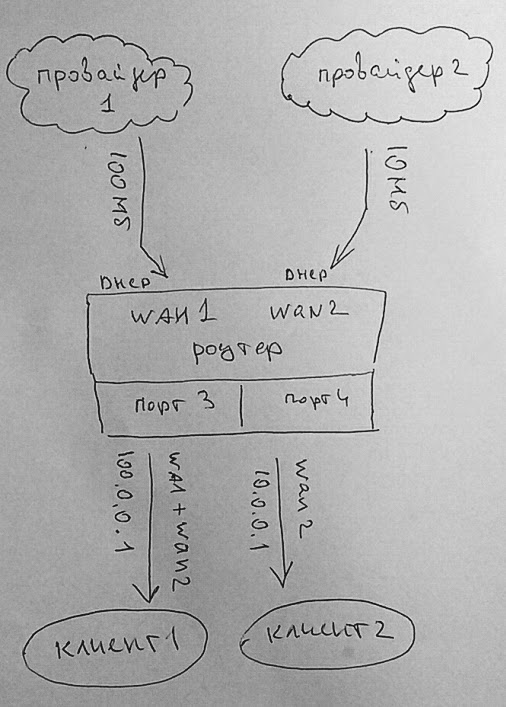 провайдер
1
провайдер 2
100 Мб
10 Мб
DHCP
DHCP
WAN 1
WAN 2
роутер
порт 3
порт 4
WA1 + wan2
100.0.0.1
wan 2
10.0.0.1
клиент 1
клиент 2